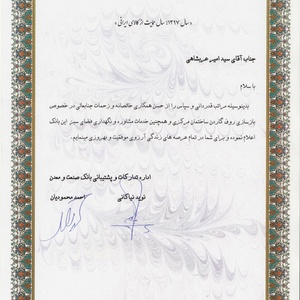 «سال ۱۳۹۷؛ سال حمایت از کالای ایرانی»
جناب آقای سید امیر عربشاهی
با سلام
بدینوسیله مراتب قدردانی و سپاس را از حسن همکاری خالصانه و زحمات جنابعالی در خصوص
بازسازی روف گاردن ساختمان مرکزی و همچنین خدمات مشاوره و نگهداری فضای سبز این بانک
اعلام نموده و برای شما در تمام عرصه های زندگی آرزوی موفقیت و بهروزی مینمایم.
اداره تدارکات و پشتیبانی بانک صنعت و معدن
نوید نیاکانی احمد محمودیان